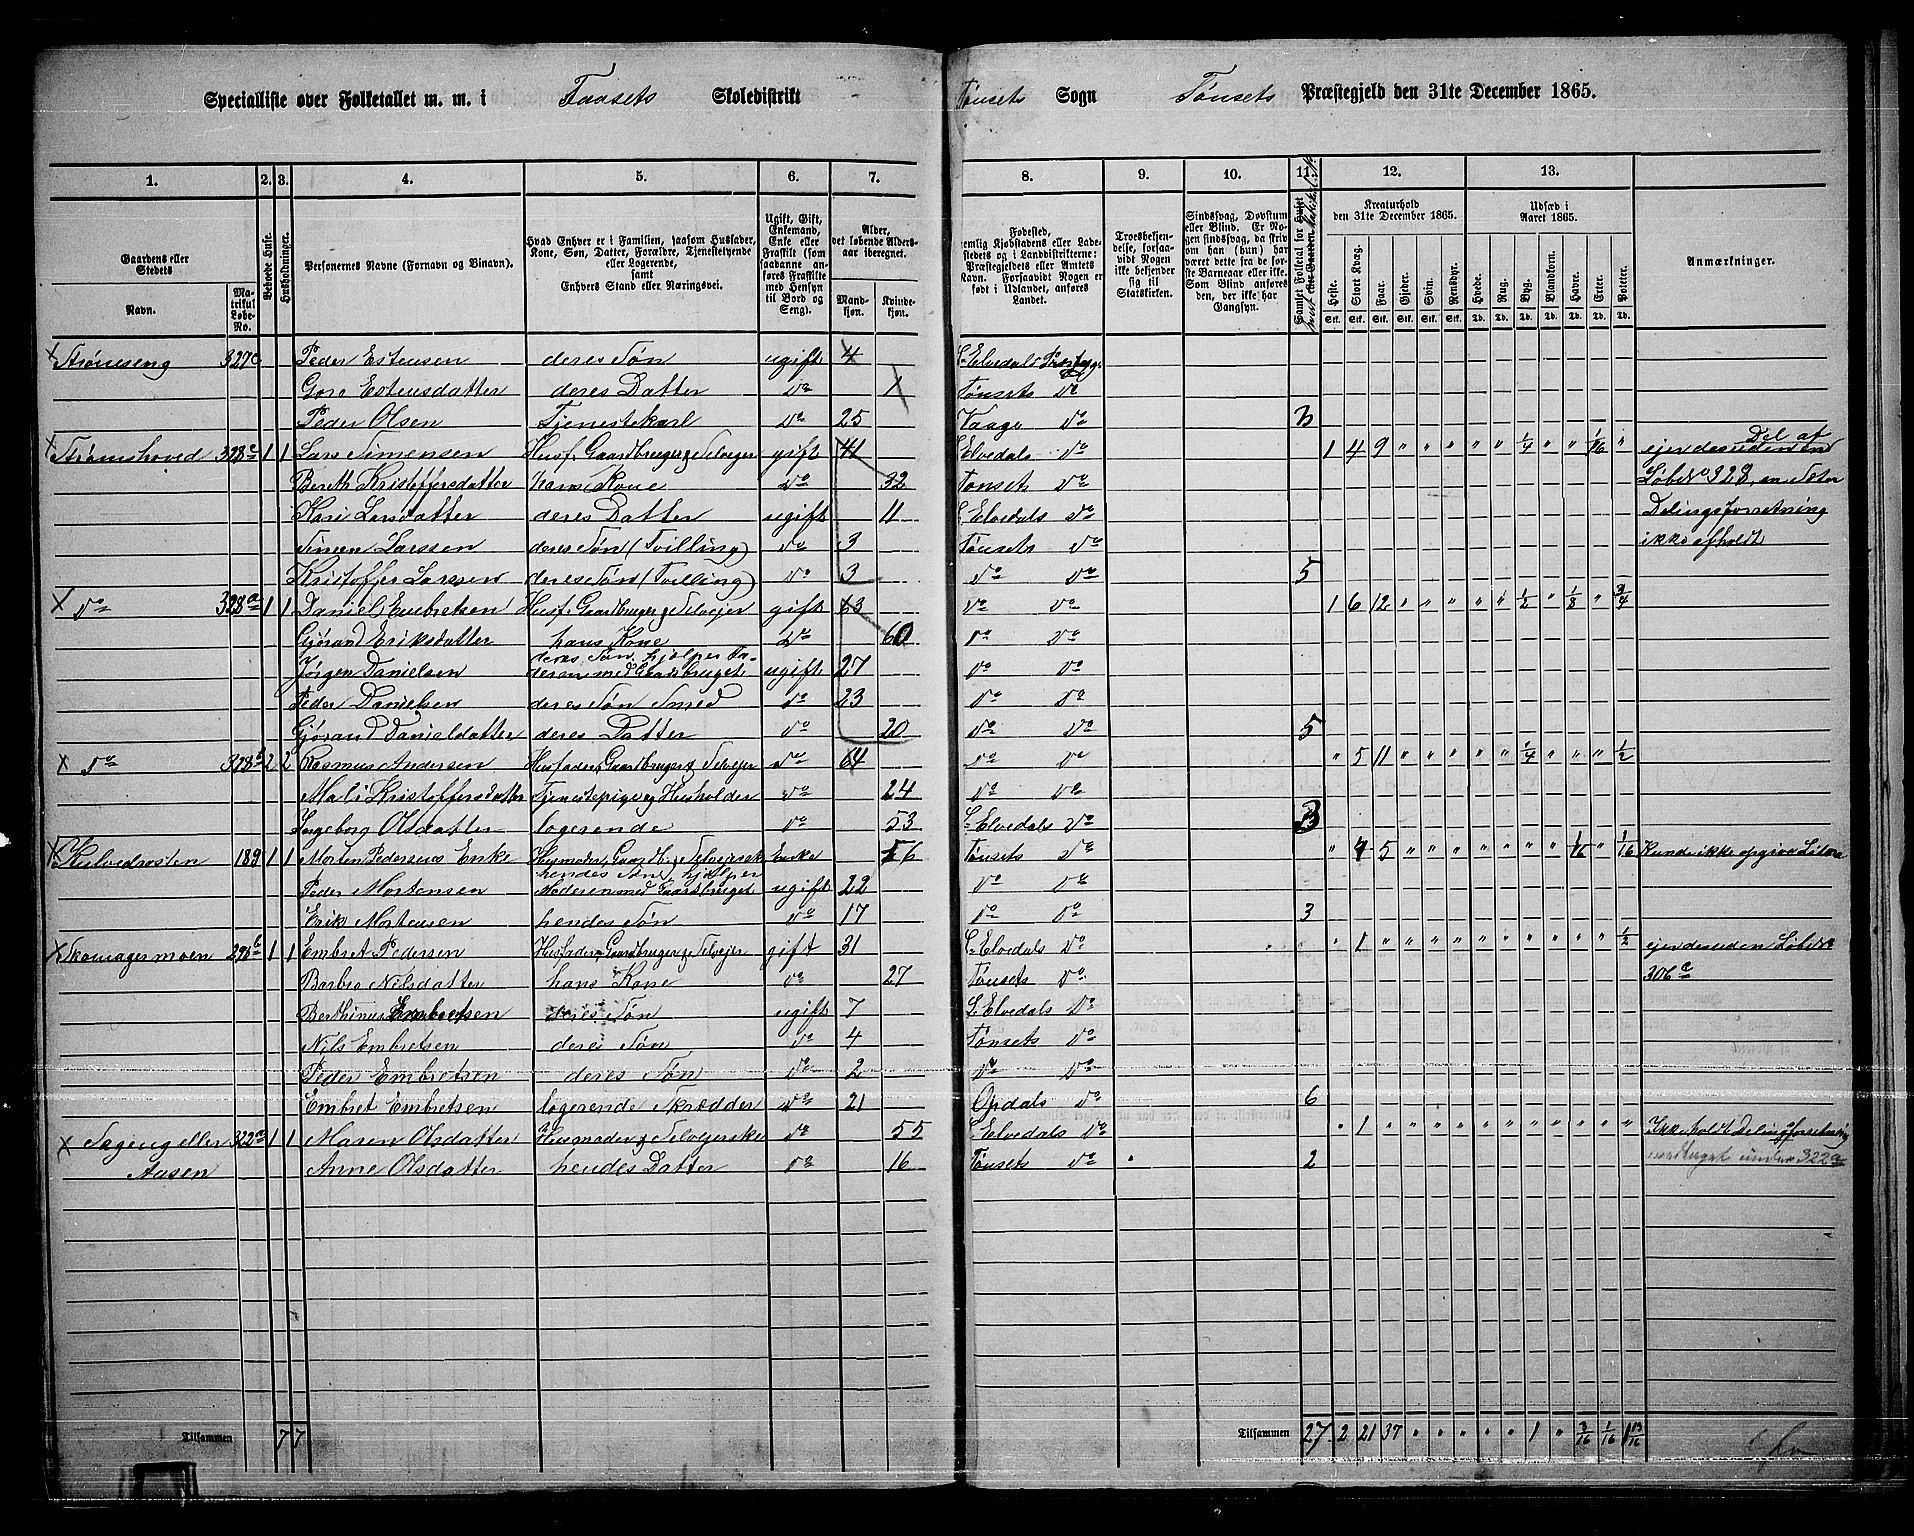 Specialliste over Folketallet m. m. i Faasets Skoledistrikt Tønsets Sogn Tønsets Præstegjeld den 31te December 1865.
1. 2. 3. 4. 5. 6. 7. 8. 9. 10. 11. 12. 13.
Gaardens eller Stedets
Navn.
Matrikul Løbe-No.
Beboede Huse.
Husholdninger.
Personernes Navne (Fornavn og Tilnavn).
Hvad Enhver er i Familien, saasom Husfader, Kone, Søn, Datter, Forældre, Tjenestetyende eller Logerende, samt Enhvers Stand eller Næringsvei.
Ugift, Gift, Enkemand, Enke eller Fraskilt (som saadanne anføres Fraskilte med Hensyn til Bord og Seng).
Alder, det løbende Aldersaar iberegnet.
Mandkjøn.
Kvindekjøn.
Fødested,
Troesbekjendelse, forsaavidt Nogen ikke bekjender sig til Statskirken.
Sindssvag, Døvstum eller Blind.
Kreaturhold den 31te December 1865.
Heste. Stort Kvæg. Faar. Gjeder. Svin. Rensdyr.
Stk. Stk. Stk. Stk. Stk. Stk.
Udsæd i Aaret 1865.
Hvede. Rug. Byg. Blandkorn. Havre. Erter. Poteter.
Td. Td. Td. Td. Td. Td. Td.
Anmærkninger.
Strømseng 327c Peder Estensen deres Søn ugift 4 L. Elvedals Præstegj.
Goro Estensdatter deres Datter do 1 Tønsets do
Peder Olsen Tjenestekarl do 25 Vaage do 3
Strømshoved 328c 1 1 Lars Simensen Husf. Gaardbruger & Selveier gift 41 L Elvedals do 1 4 9 " " " " " 1/4 " 1/16 " "
Berith Kristoffersdatter hans Kone do 32 Tønsets do
Kari Larsdatter deres Datter ugift 11 L Elvedals do
Simen Larssen deres Søn (Tvilling) do 3 Tønsets do
Kristoffer Larssen deres Søn (Tvilling) do 3 do do 5
ejer desuden en Del af
Løbe No 328, en Seter
Delingsforretning
ikke afholdt
do 328a 1 1 Daniel Embretsen Husf. Gaardbruger & Selvejer gift 63 do do 1 6 12 " " " " " 1/2 " 1/8 " 3/4
Gjørand Eriksdatter hans Kone do 60 do do
Jørgen Danielsen deres Søn, hjelper Faderen med Gaardsbruget ugift 27 do do
Peder Danielsen deres Søn Smed do 23 do do
Gjørand Danielsdatter deres Datter do 20 do do 5
do 328b 2 2 Rasmus Andersen Husfader, Gaardbruger & Selvejer do 64 do do " 5 11 " " " " " 1/4 " " " 1/2
Mali Kristoffersdatter Tjenestepige og Husholder do 24 do do
Ingeborg Olsdatter logerende do 53 L Elvedals do 3
189 1 1 Morten Pedersens Enke Husmoder, Gaardb. & Selvejerske Enke 56 Tønsets do " 4 5 " " " " " " " 1/16 " 1/16
Peder Mortensen hendes Søn, hjelper Moderen med Gaardsbruget ugift 22 do do
Erik Mortensen hendes Søn do 17 do do 3
Skomagermoen 296b 1 1 Embret Pedersen Husfader, Gaardbruger & Selvejer gift 31 L. Elvedals do " 1 " " " " " " " " " " 1/2 ejer desuden Løbe No
306c
Barbro Nilsdatter hans Kone do 27 Tønsets do
Berthinus Embretsen deres Søn ugift 7 L Elvedals do
Nils Embretsen deres Søn do 4 Tønsets do
Peder Embretsen deres Søn do 2 do do
Embret Embretsen logerende Skrædder do 21 Opdals do 6
Sageng eller 322a 1 1 Maren Olsdatter Husmoder & Selvejerske do 55 L. Elvedals do " 1 " " " " " " " " " " " Ikke holdt Delingsforretning
Aasen Anne Olsdatter hendes Datter do 16 Tønsets do 2 under 322a
Tilsammen 7 7 Tilsammen 27 2 21 37 " " " " " 1 " 3/16 1/16 1 13/16